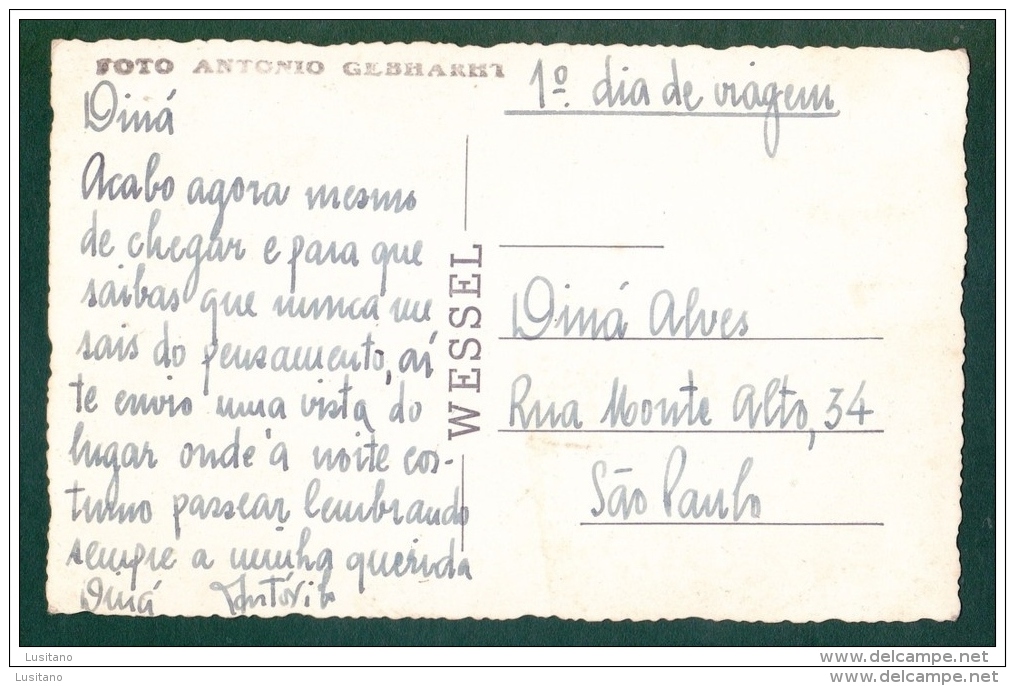 FOTO ANTONIO GEBHARHT
Diná
Acabo agora mesmo
de chegar e para que
saibas que nunca me
sais do pensamento, aí
te envio uma vista do
lugar onde à noite cos-
tumo passear lembrando
sempre a minha querida
Diná António
WESSEL
1º dia de viagem
Diná Alves
Rua Monte Alto, 34
São Paulo
Lusitano
www.delcampe.net
Lusitano
www.delcampe.net